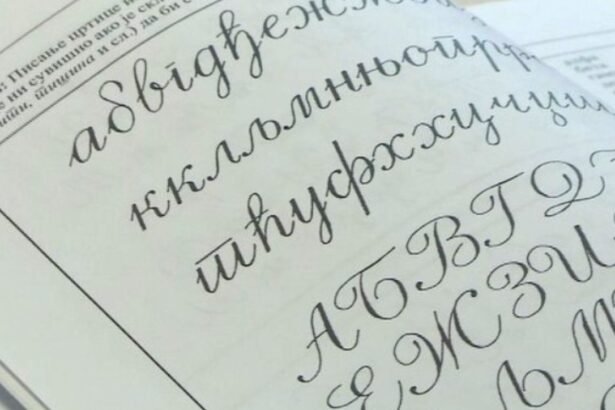 Писање цртице
е ни сувишно ако је
ити, тишина и сл.) да би с
абвгдђеж
ккљмнњопрр
тћуфххцчџ
АБВГД
ЕЖЗИ
ЉМ